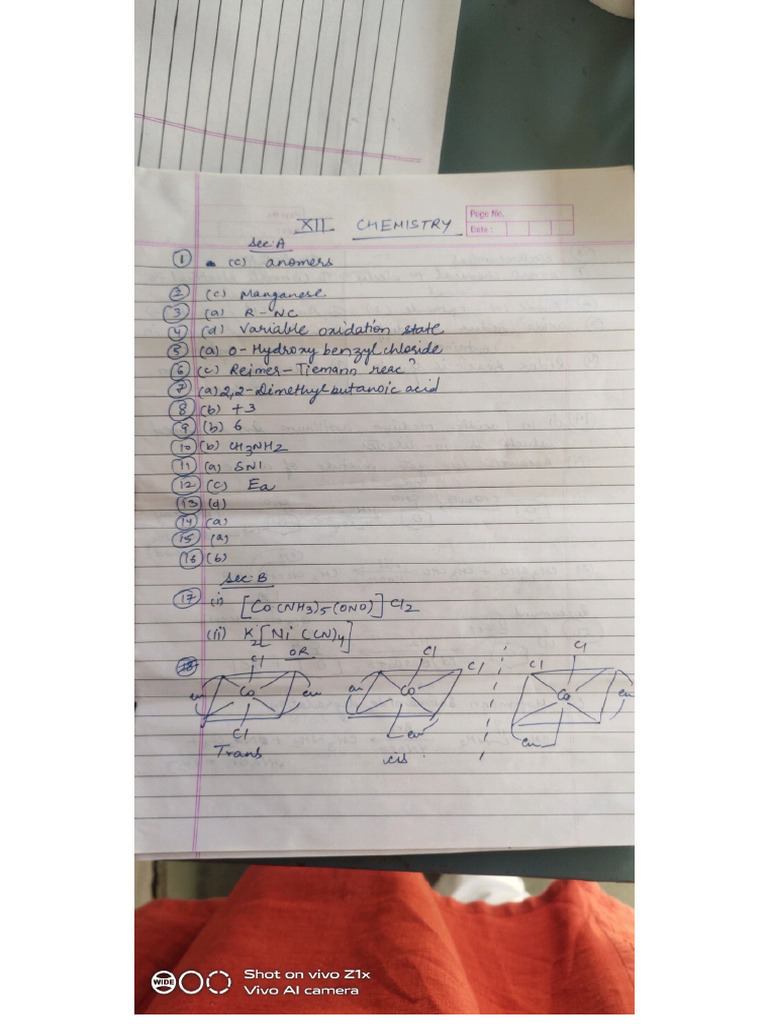 Page No.
Date :
XII CHEMISTRY
Sec: A
① (c) anomers
② (c) Manganese
③ (a) R-NC
④ (d) Variable oxidation state
⑤ (a) O-Hydroxy benzyl chloride
⑥ (c) Reimer-Tiemann reacⁿ
⑦ (a) 2,2-Dimethylbutanoic acid
⑧ (b) +3
⑨ (b) 6
⑩ (b) CH3NH2
⑪ (a) SN1
⑫ (c) Ea
⑬ (d)
⑭ (a)
⑮ (a)
⑯ (b)
Sec: B
⑰ (i) [Co(NH3)5(ONO)]Cl2
(ii) K2[Ni(CN)4]
OR
Cl Cl Cl
Cl Cl
en Co en en Co Co en
Cl en en
Trans cis
WIDE
Shot on vivo Z1x
Vivo AI camera